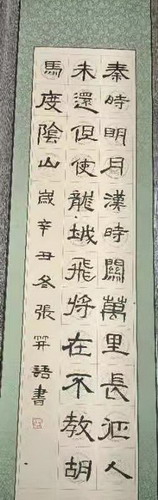 秦時明月漢時關萬里長征人
未還但使龍城飛將在不教胡
馬度陰山歲辛丑冬張語書